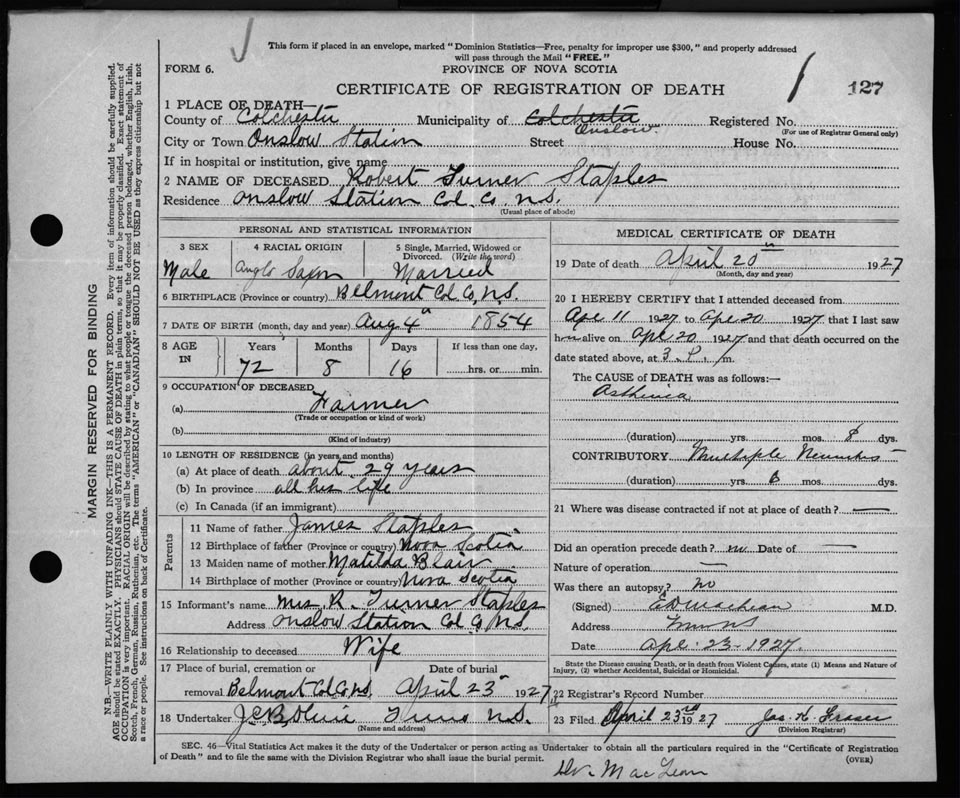 This form if placed in an envelope, marked "Dominion Statistics—Free, penalty for improper use $300," and properly addressed
will pass through the Mail "FREE."
FORM 6.
PROVINCE OF NOVA SCOTIA
CERTIFICATE OF REGISTRATION OF DEATH
127
1 PLACE OF DEATH—
County of Colchester Municipality of Colchester Onslow Registered No.
(For use of Registrar General only)
City or Town Onslow Station Street House No.
If in hospital or institution, give name
2 NAME OF DECEASED Robert Turner Staples
Residence Onslow Station Col. Co. N.S.
(Usual place of abode)
PERSONAL AND STATISTICAL INFORMATION
3 SEX 4 RACIAL ORIGIN 5 Single, Married, Widowed or Divorced. (Write the word)
Male Anglo Saxon Married
6 BIRTHPLACE (Province or country) Belmont Col. Co. N.S.
7 DATE OF BIRTH (month, day and year) Aug 4th 1854
8 AGE IN Years Months Days If less than one day,
72 8 16 hrs. or min.
9 OCCUPATION OF DECEASED
(a) Farmer
(Trade or occupation or kind of work)
(b)
(Kind of industry)
10 LENGTH OF RESIDENCE (in years and months)
(a) At place of death about 29 years
(b) In province all his life
(c) In Canada (if an immigrant)
Parents
11 Name of father James Staples
12 Birthplace of father (Province or country) Nova Scotia
13 Maiden name of mother Matilda Blair
14 Birthplace of mother (Province or country) Nova Scotia
15 Informant's name Mrs R. Turner Staples
Address Onslow Station Col. Co. N.S.
16 Relationship to deceased Wife
17 Place of burial, cremation or Date of burial
removal Belmont Col. Co. N.S. April 23 1927
18 Undertaker N.S.
(Name and address)
MEDICAL CERTIFICATE OF DEATH
19 Date of death April 20th 1927
(Month, day and year)
20 I HEREBY CERTIFY that I attended deceased from
Apr 11 1927 to Apr 20 1927 that I last saw
him alive on Apr 20 1927 and that death occurred on the
date stated above, at 3 P. m.
The CAUSE OF DEATH was as follows:—
Asthenia
(duration) yrs. mos. 8 dys.
CONTRIBUTORY Multiple Neuritis
(duration) yrs. mos. dys.
21 Where was disease contracted if not at place of death? —
Did an operation precede death? no Date of —
Nature of operation —
Was there an autopsy? no
(Signed) M.D.
Address
Date Apr 23 - 1927.
State the Disease causing Death, or in death from Violent Causes, state (1) Means and Nature of
Injury, (2) whether Accidental, Suicidal or Homicidal.
22 Registrar's Record Number
23 Filed April 23rd 1927 Jas. H. Fraser
(Division Registrar)
SEC. 46—Vital Statistics Act makes it the duty of the Undertaker or person acting as Undertaker to obtain all the particulars required in the "Certificate of Registration
of Death" and to file the same with the Division Registrar who shall issue the burial permit.
(OVER)
Dr. MacLean
MARGIN RESERVED FOR BINDING
N.B.—WRITE PLAINLY WITH UNFADING INK—THIS IS A PERMANENT RECORD. Every item of information should be carefully supplied.
AGE should be stated EXACTLY. PHYSICIANS should STATE CAUSE OF DEATH in plain terms, so that it may be properly classified. Exact statement of
OCCUPATION is very important. RACIAL ORIGIN will be described by stating to what people or tongue the deceased person belonged, whether English, Irish,
Scotch, French, German, Russian, Ruthenian, etc. The terms "AMERICAN" or "CANADIAN" SHOULD NOT BE USED as they express citizenship but not
a race or people. See instructions on back of Certificate.